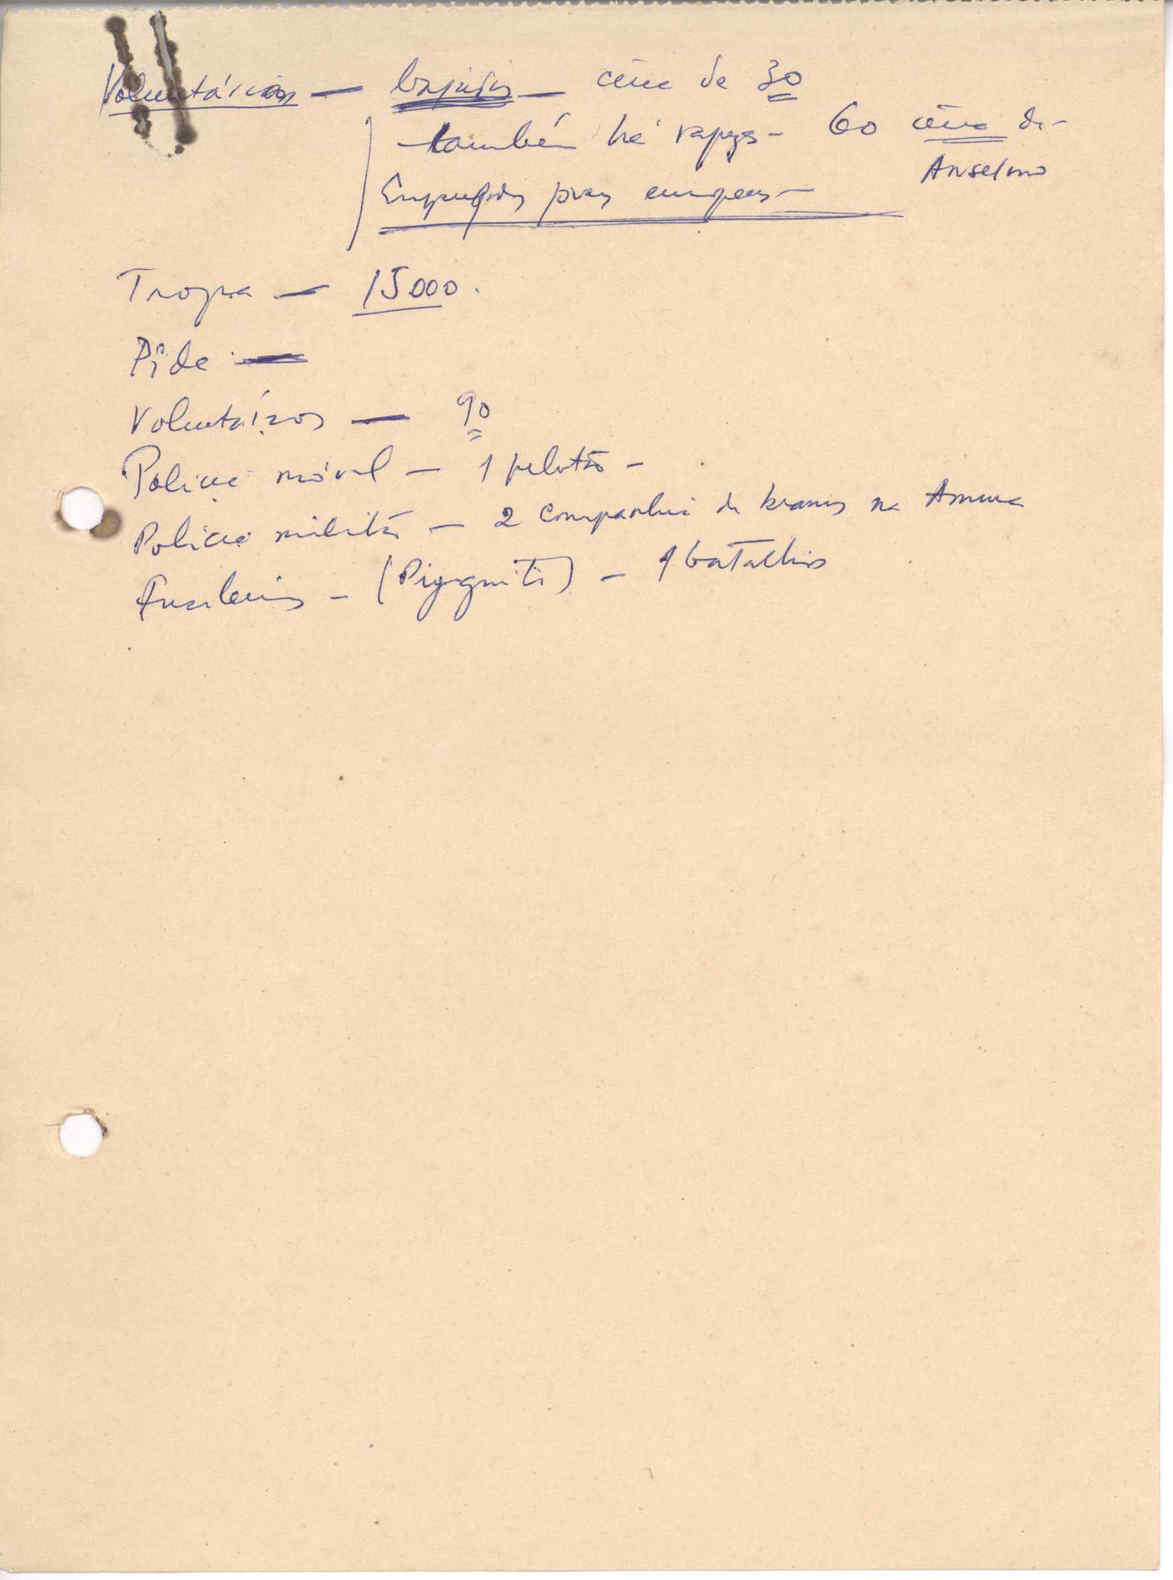 Voluntários — — cêrca de 30
também há rapazes — 60 cêrca de —
Anselmo
Empregados europeus —
Tropa — 15000.
Pide —
Voluntários — 90
Policia móvel — 1 pelotão —
Policia militar — 2 companhia de brancos na Amura
Fuzileiros — (Pigiguiti) — 1 batalhão